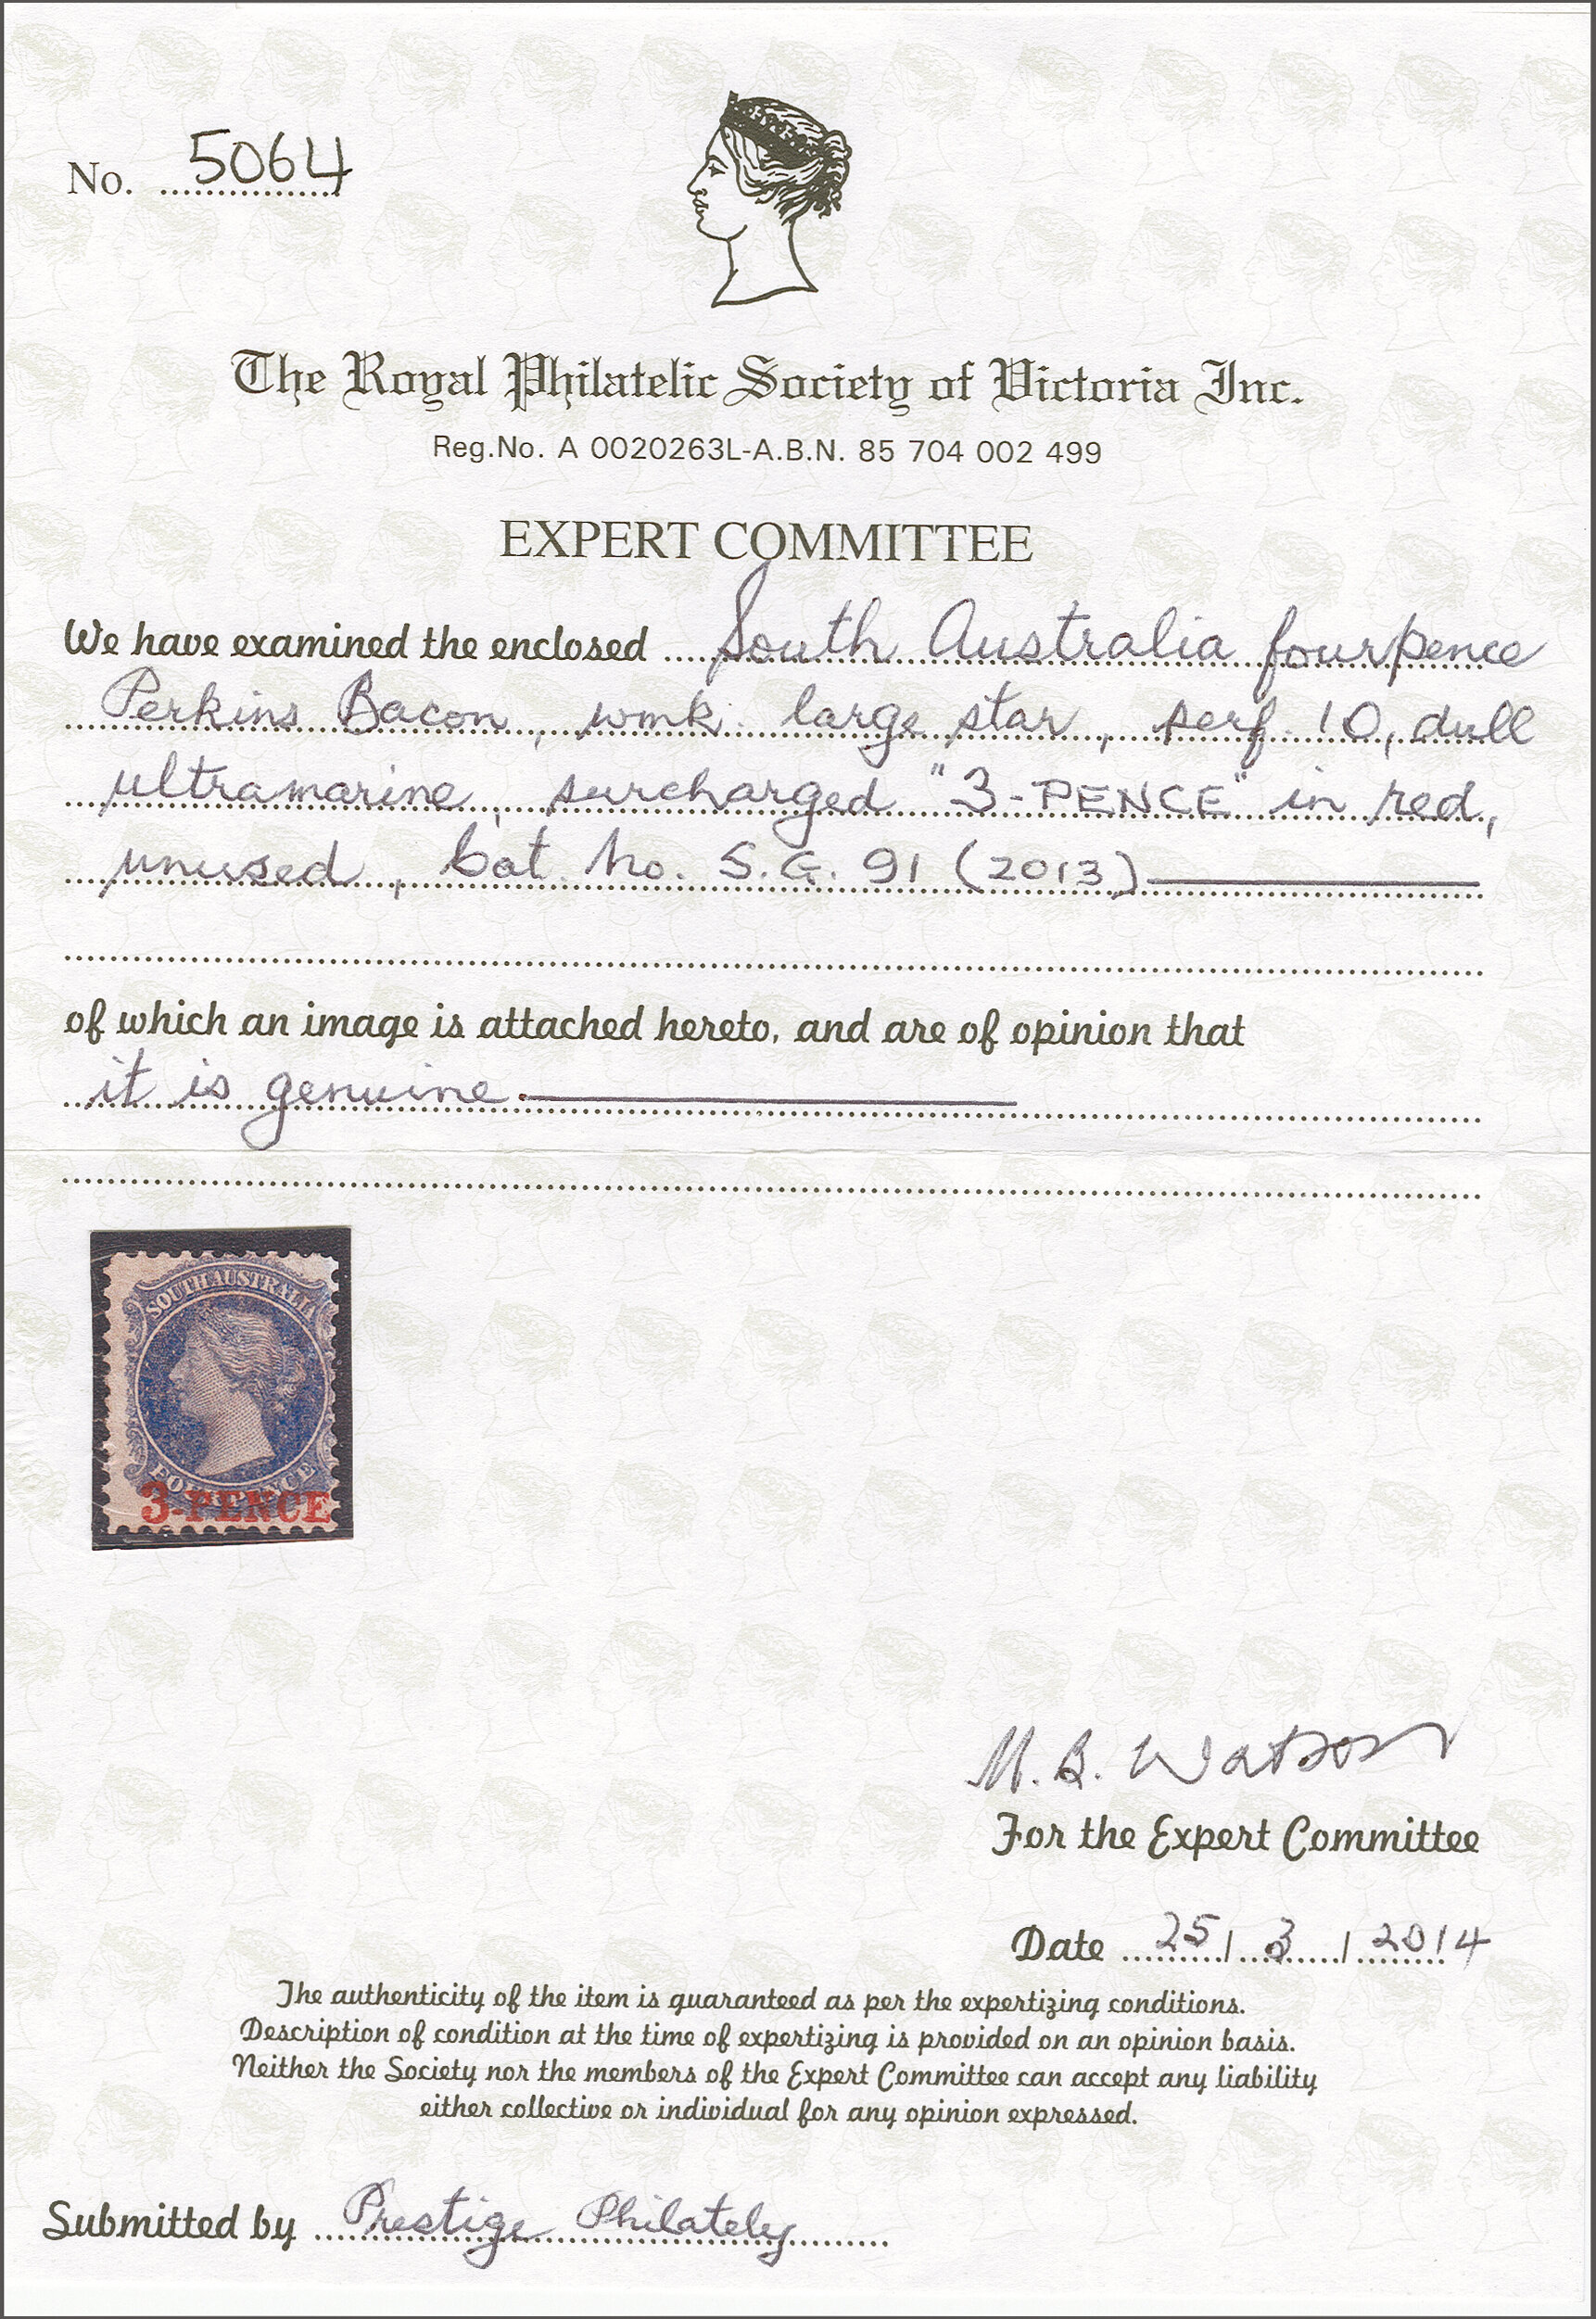 No. 5064
The Royal Philatelic Society of Victoria Inc.
Reg.No. A 0020263L-A.B.N. 85 704 002 499
EXPERT COMMITTEE
We have examined the enclosed South Australia fourpence
Perkins Bacon, wmk. large star, perf. 10, dull
ultramarine, surcharged "3-PENCE" in red,
unused, Cat. No. S.G. 91 (2013)
of which an image is attached hereto, and are of opinion that
it is genuine.
SOUTH AUSTRALIA
FOURPENCE
3-PENCE
M. B. Watson
For the Expert Committee
Date 25/3/2014
The authenticity of the item is guaranteed as per the expertizing conditions.
Description of condition at the time of expertizing is provided on an opinion basis.
Neither the Society nor the members of the Expert Committee can accept any liability
either collective or individual for any opinion expressed.
Submitted by Prestige Philately